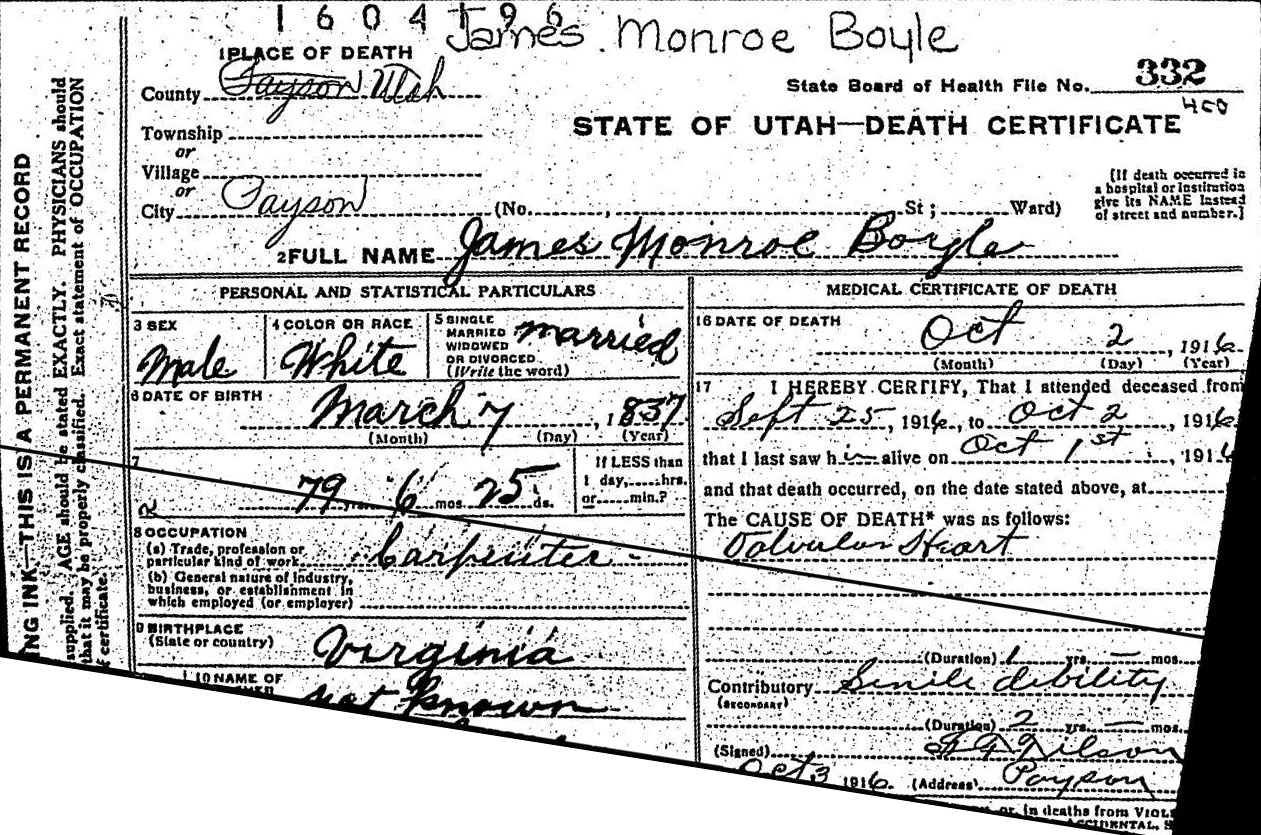 1 6 0 4 1 9 6
James Monroe Boyle
1 PLACE OF DEATH
County Payson Utah
State Board of Health File No. 332
400
Township
or
Village
or
City Payson (No. , St ; Ward)
STATE OF UTAH—DEATH CERTIFICATE
[If death occurred in
a hospital or institution
give its NAME instead
of street and number.]
2 FULL NAME James Monroe Boyle
PERSONAL AND STATISTICAL PARTICULARS
3 SEX
Male
4 COLOR OR RACE
White
5 SINGLE
MARRIED
WIDOWED
OR DIVORCED
(Write the word)
married
6 DATE OF BIRTH
March 7 , 1837
(Month) (Day) (Year)
7
79 yrs. 6 mos. 25 ds.
If LESS than
1 day, hrs.
or min.?
8 OCCUPATION
(a) Trade, profession or
particular kind of work Carpenter
(b) General nature of industry,
business, or establishment in
which employed (or employer)
9 BIRTHPLACE
(State or country) Virginia
10 NAME OF
not known
MEDICAL CERTIFICATE OF DEATH
16 DATE OF DEATH
Oct 2 , 1916
(Month) (Day) (Year)
17 I HEREBY CERTIFY, That I attended deceased from
Sept 25, 1916, to Oct 2, 1916
that I last saw him alive on Oct 1st, 1916
and that death occurred, on the date stated above, at
The CAUSE OF DEATH* was as follows:
Valvular Heart
(Duration) 1 yrs. — mos.
Contributory Senile debility
(SECONDARY)
(Duration) 2 yrs. — mos.
(Signed) Wilson
Oct 3 1916. (Address) Payson
or, in deaths from VIOL
ACCIDENTAL, S
NG INK—THIS IS A PERMANENT RECORD
supplied. AGE should be stated EXACTLY. PHYSICIANS should
that it may be properly classified. Exact statement of OCCUPATION
certificate.